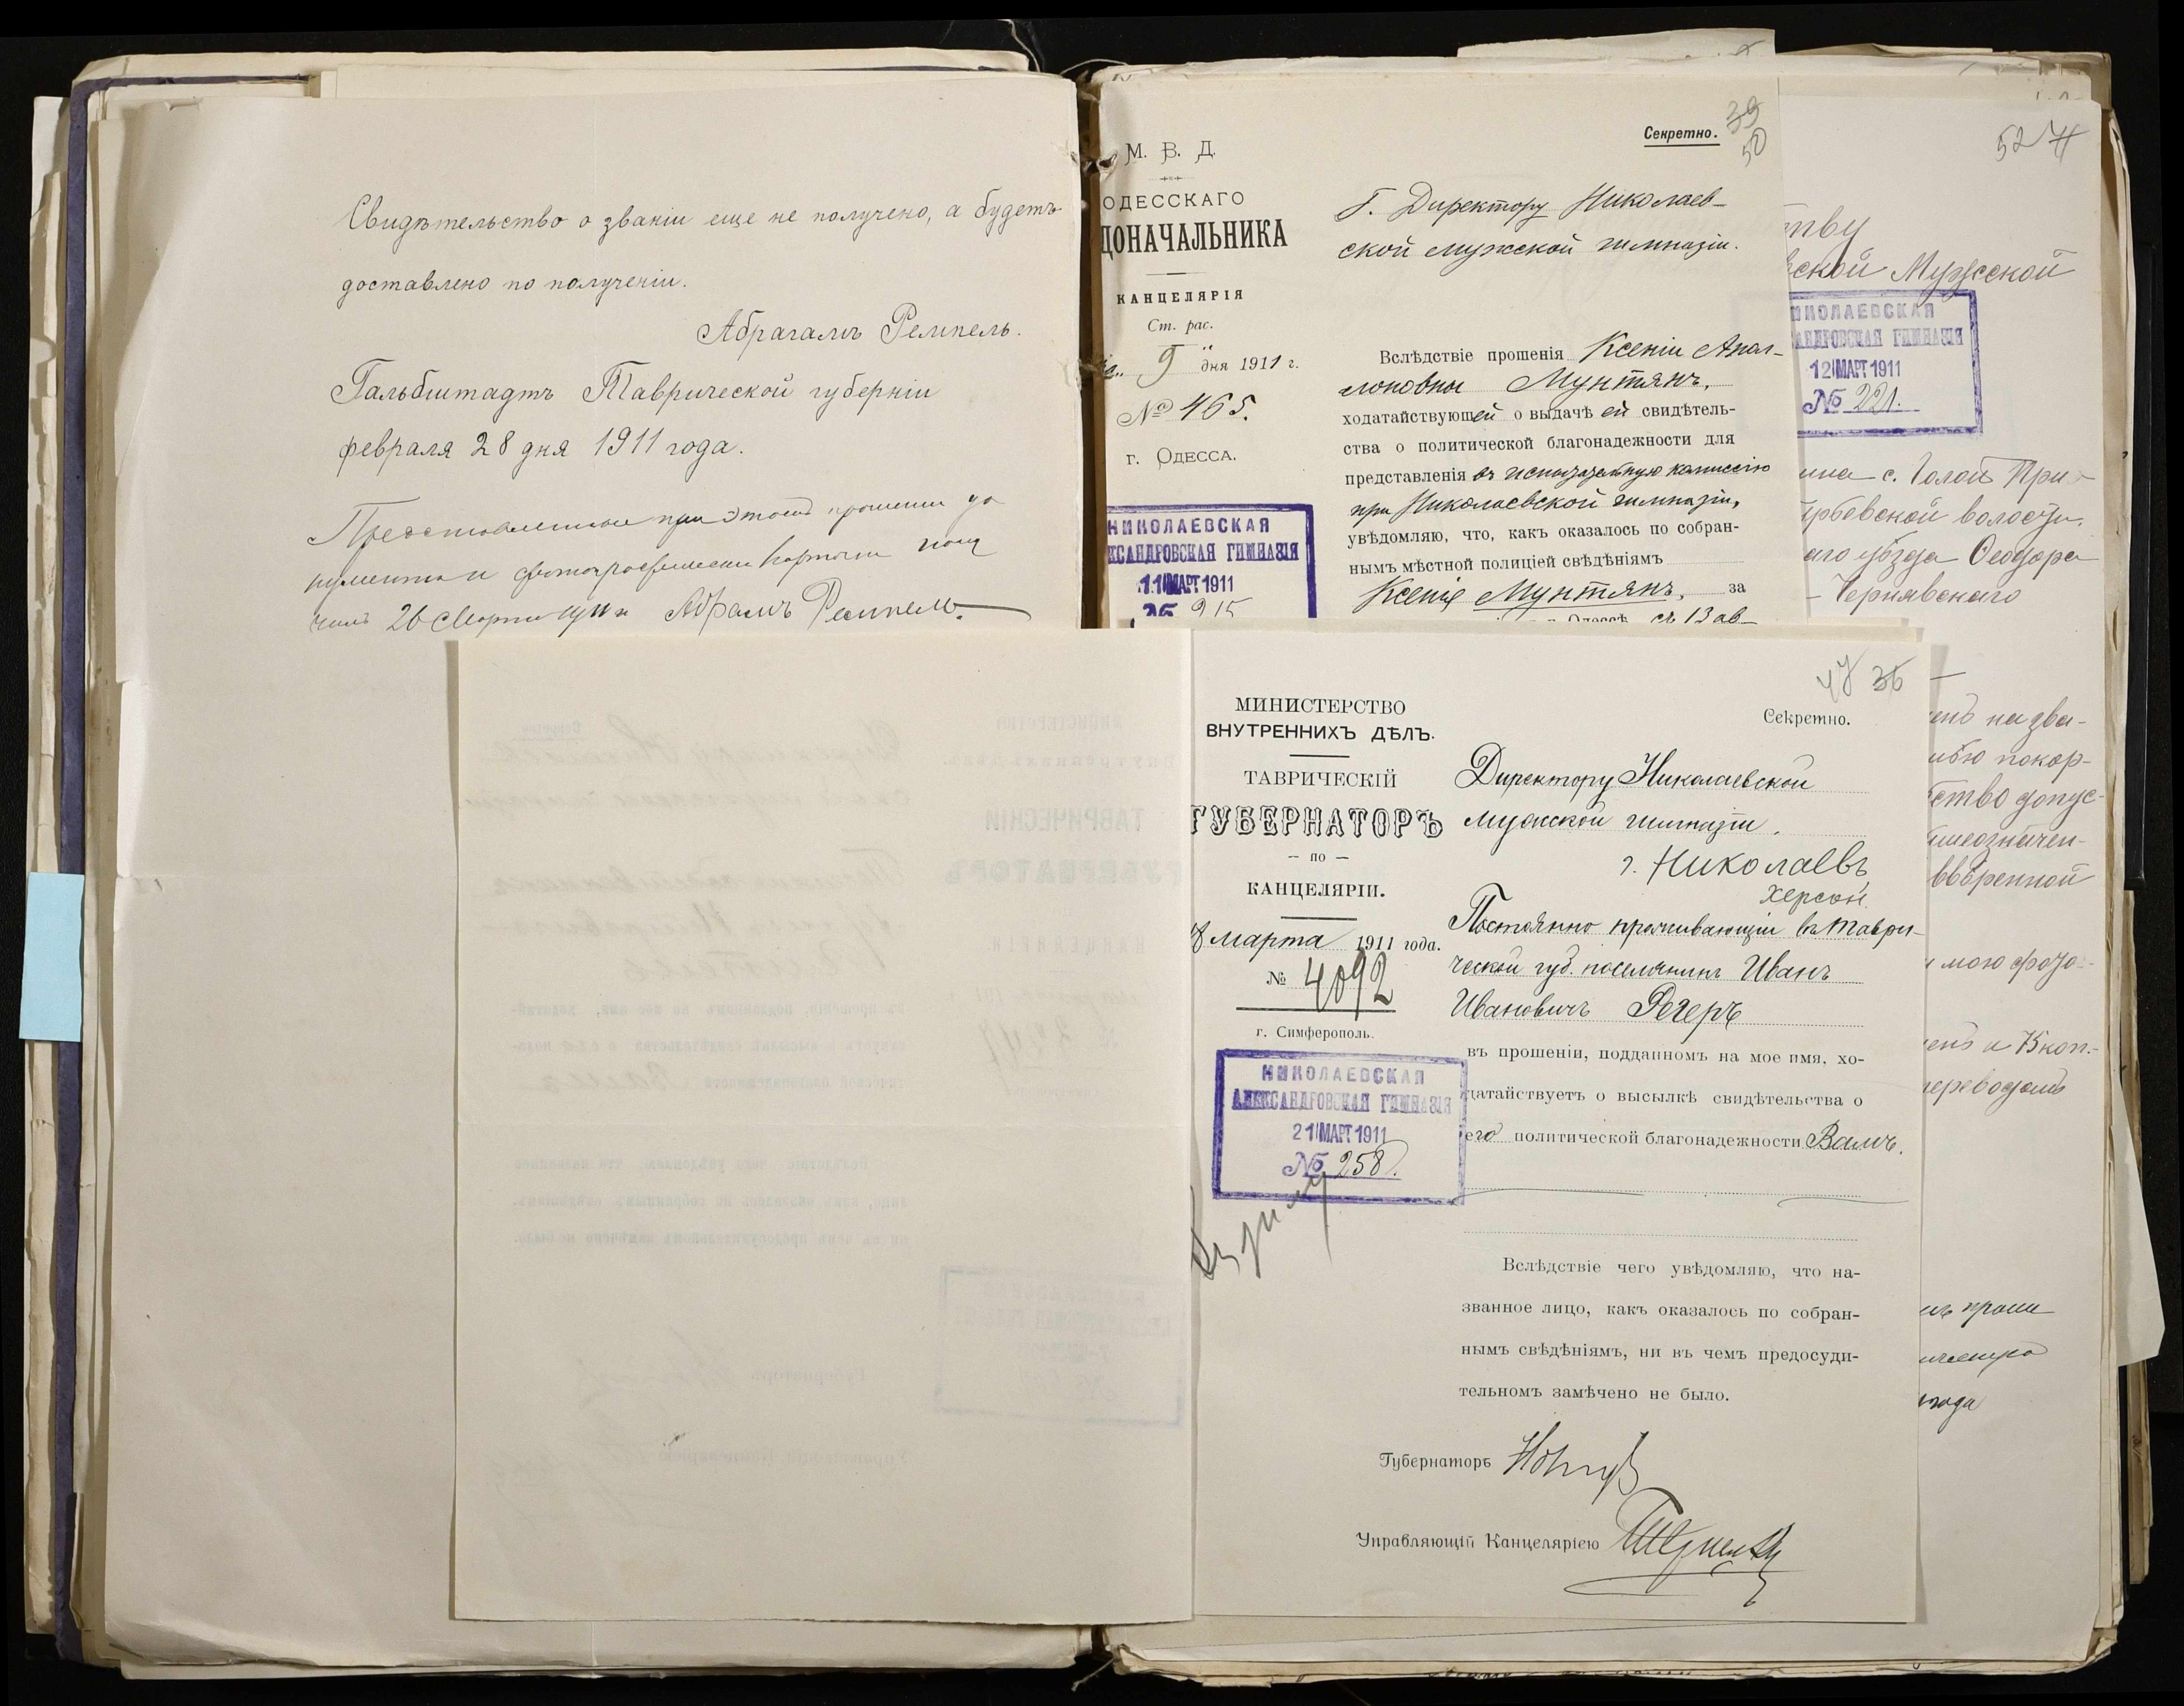 Свидѣтельство о званіи еще не получено, а будетъ
доставлено по полученіи.
Абрагамъ Ремпель.
Гальбштадтъ Таврической губерніи
февраля 28 дня 1911 года.
при этомъ прошеніи до
кументы и фотографическія карточки полу
чилъ 26 Марта 1911 г. Абрамъ Ремпель.
Секретно.
39
50
М. В. Д.
ОДЕССКАГО
ДОНАЧАЛЬНИКА
КАНЦЕЛЯРІЯ
Ст. рас.
9 дня 1911 г.
№ 465.
г. ОДЕССА.
НИКОЛАЕВСКАЯ
КСАНДРОВСКАЯ ГИМНАЗІЯ
11 МАРТ 1911
№ 915
Г. Директору Николаев-
ской мужской гимназіи.
Вслѣдствіе прошенія Ксеніи Апол-
лоновны Мунтянъ,
ходатайствующей о выдачѣ ей свидѣтель-
ства о политической благонадежности для
представленія въ испытательную комиссію
при Николаевской гимназіи,
увѣдомляю, что, какъ оказалось по собран-
нымъ мѣстной полиціей свѣдѣніямъ
Ксенія Мунтянъ, за
г. Одессѣ съ 13 ав-
52
тву
вской Мужской
НИКОЛАЕВСКАЯ
АНДРОВСКАЯ ГИМНАЗІЯ
12 МАРТ 1911
№ 221.
ина с. Голой При-
рбевской волости,
аго уѣзда Ѳеодора
Чернявскаго
енъ на зва-
ью покор-
ство допус-
ышеозначен-
ввѣренной
и мою фото-
енъ и 75 коп.
переводомъ
года
47 36
МИНИСТЕРСТВО
ВНУТРЕННИХЪ ДѢЛЪ.
ТАВРИЧЕСКІЙ
ГУБЕРНАТОРЪ
— по —
КАНЦЕЛЯРІИ.
8 марта 1911 года.
№ 4092
г. Симферополь.
НИКОЛАЕВСКАЯ
АЛЕКСАНДРОВСКАЯ ГИМНАЗІЯ
21 МАРТ 1911
№ 258.
Секретно.
Директору Николаевской
мужской гимназіи.
г. Николаевъ
Херсон.
Постоянно проживающій въ Таври-
ческой губ. поселянинъ Иванъ
Ивановичъ Регеръ
въ прошеніи, поданномъ на мое имя, хо-
датайствуетъ о высылкѣ свидѣтельства о
его политической благонадежности Вамъ.
Вслѣдствіе чего увѣдомляю, что на-
званное лицо, какъ оказалось по собран-
нымъ свѣдѣніямъ, ни въ чемъ предосуди-
тельномъ замѣчено не было.
Губернаторъ
Управляющій Канцеляріею